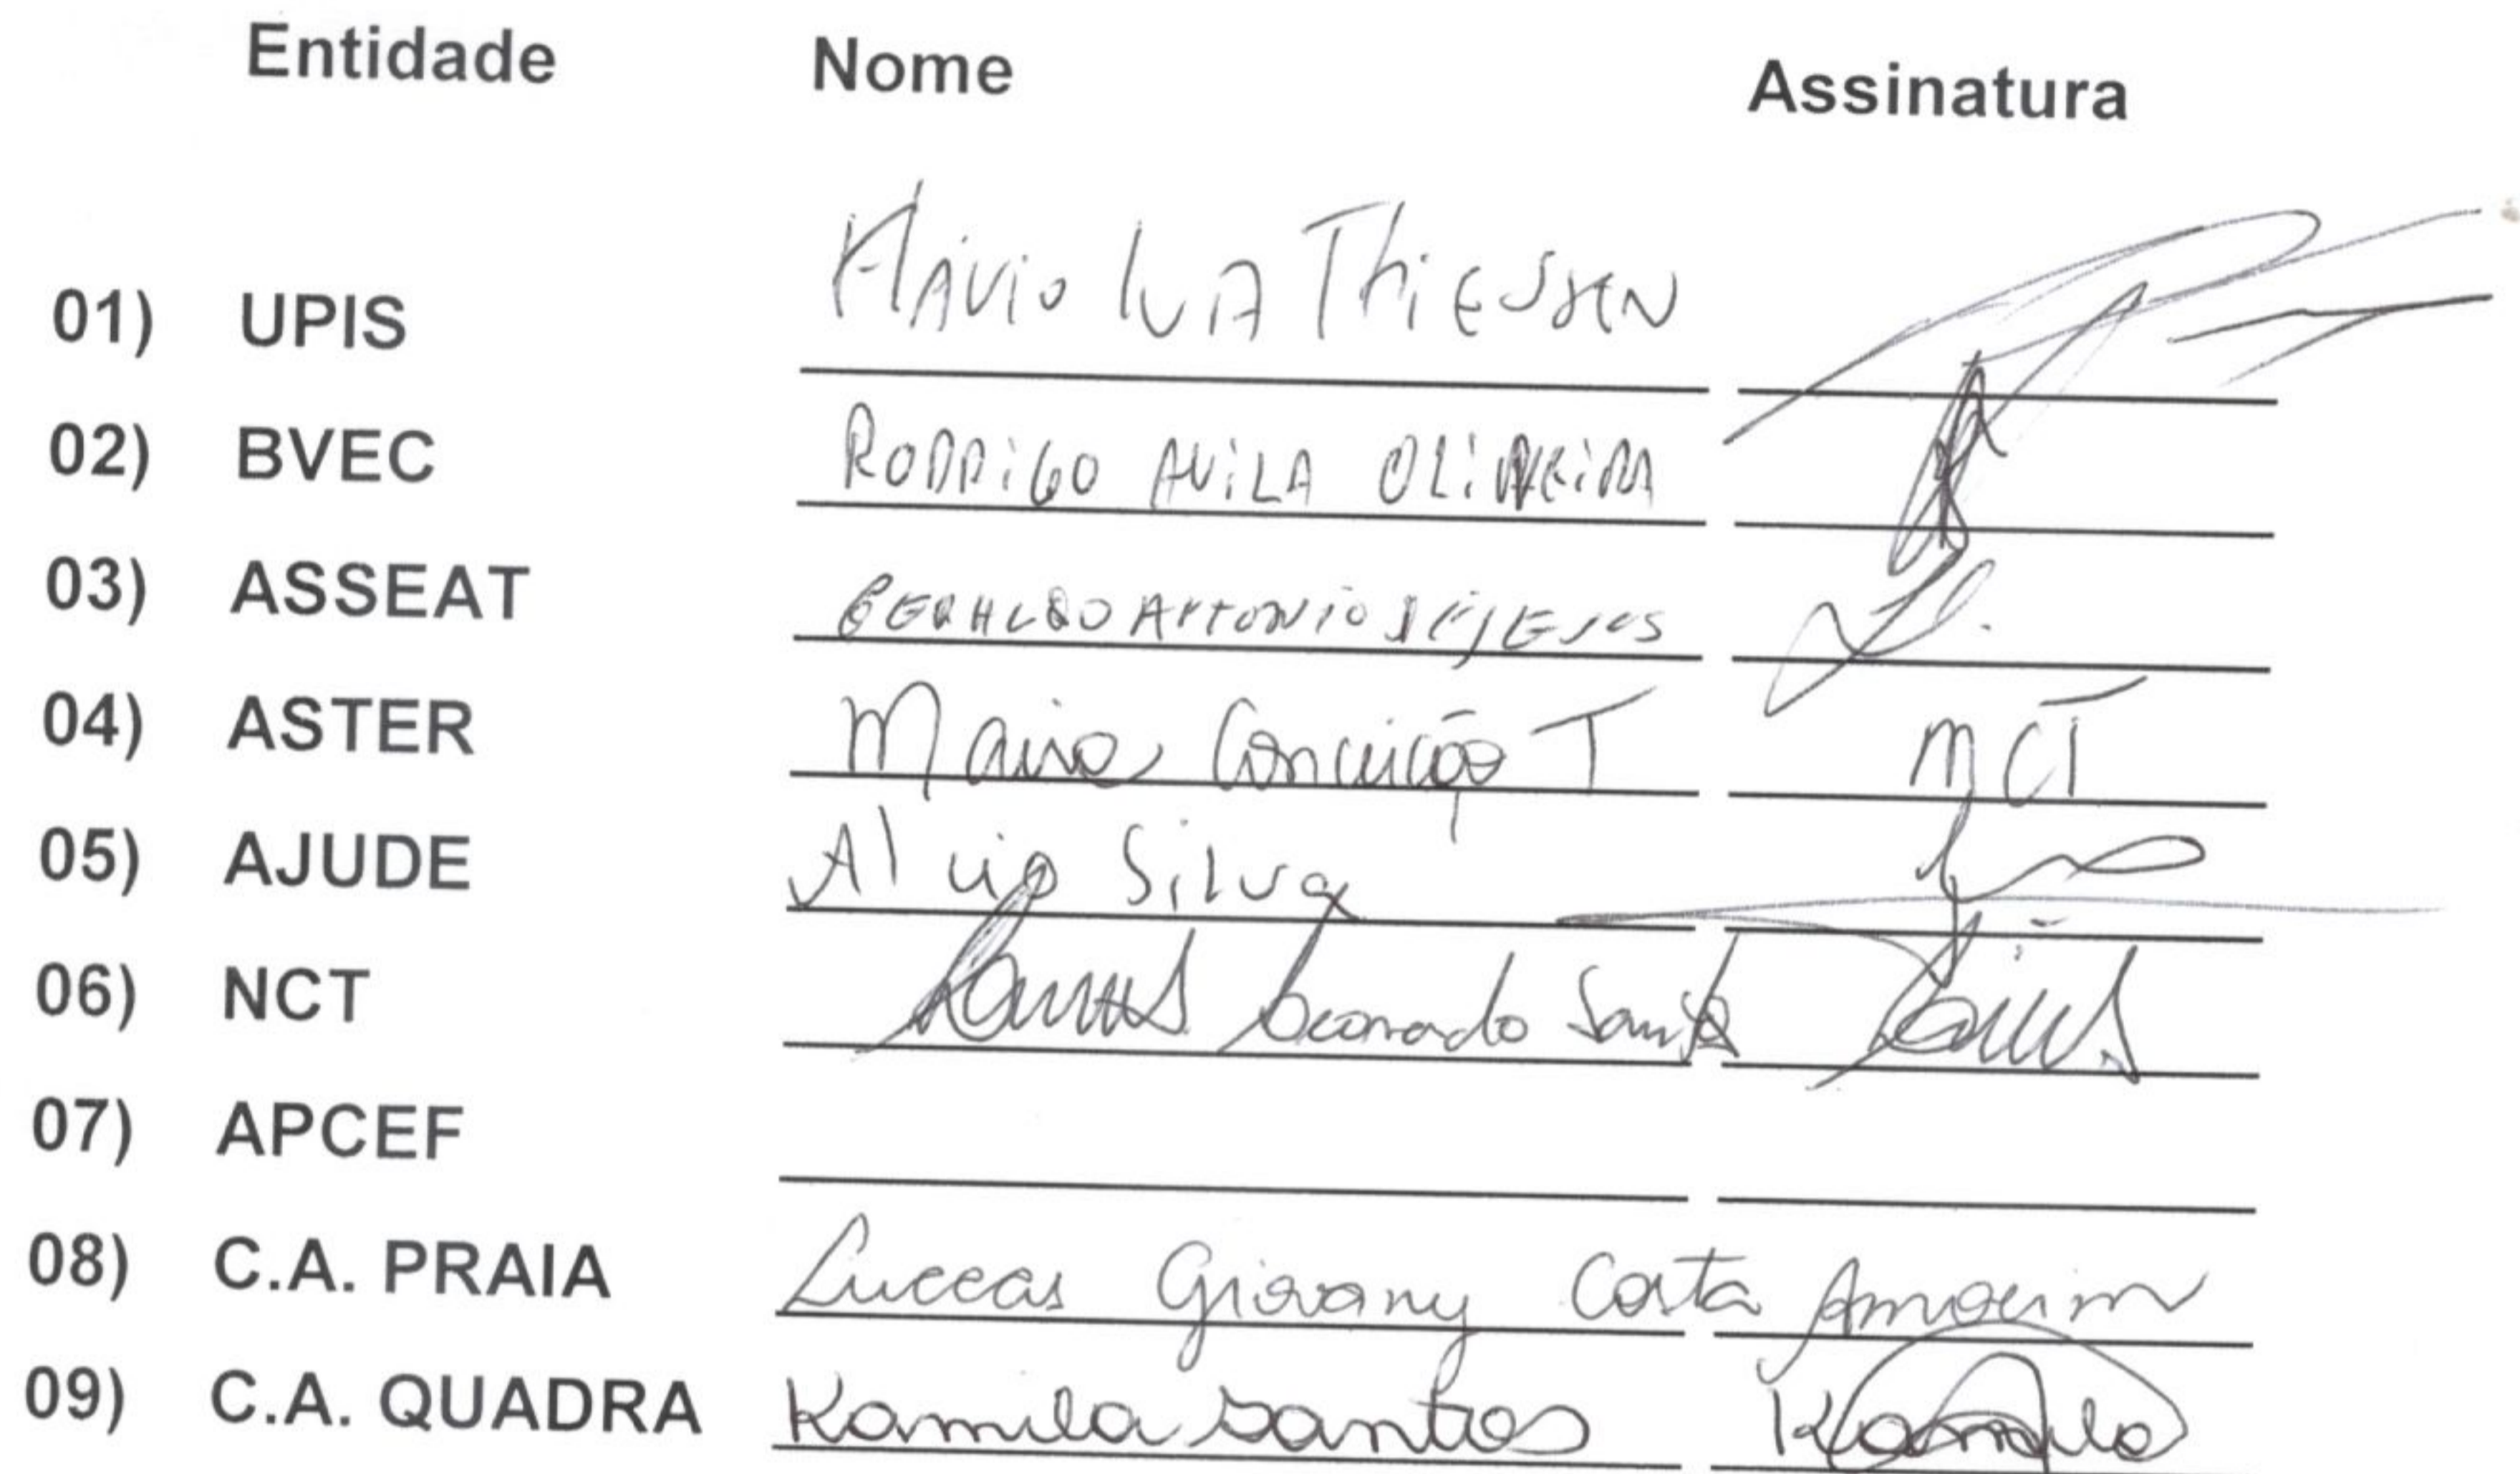 Entidade Nome Assinatura
01) UPIS Flávio Thiessen
02) BVEC RODRIGO AVILA OLIVEIRA
03) ASSEAT GERALDO ANTONIO DE JESUS
04) ASTER Maria Conceição T MCT
05) AJUDE Alcio Silva
06) NCT Leonardo
07) APCEF
08) C.A. PRAIA Luccas Giovany Costa Amorim
09) C.A. QUADRA Kamila Santos Kamila